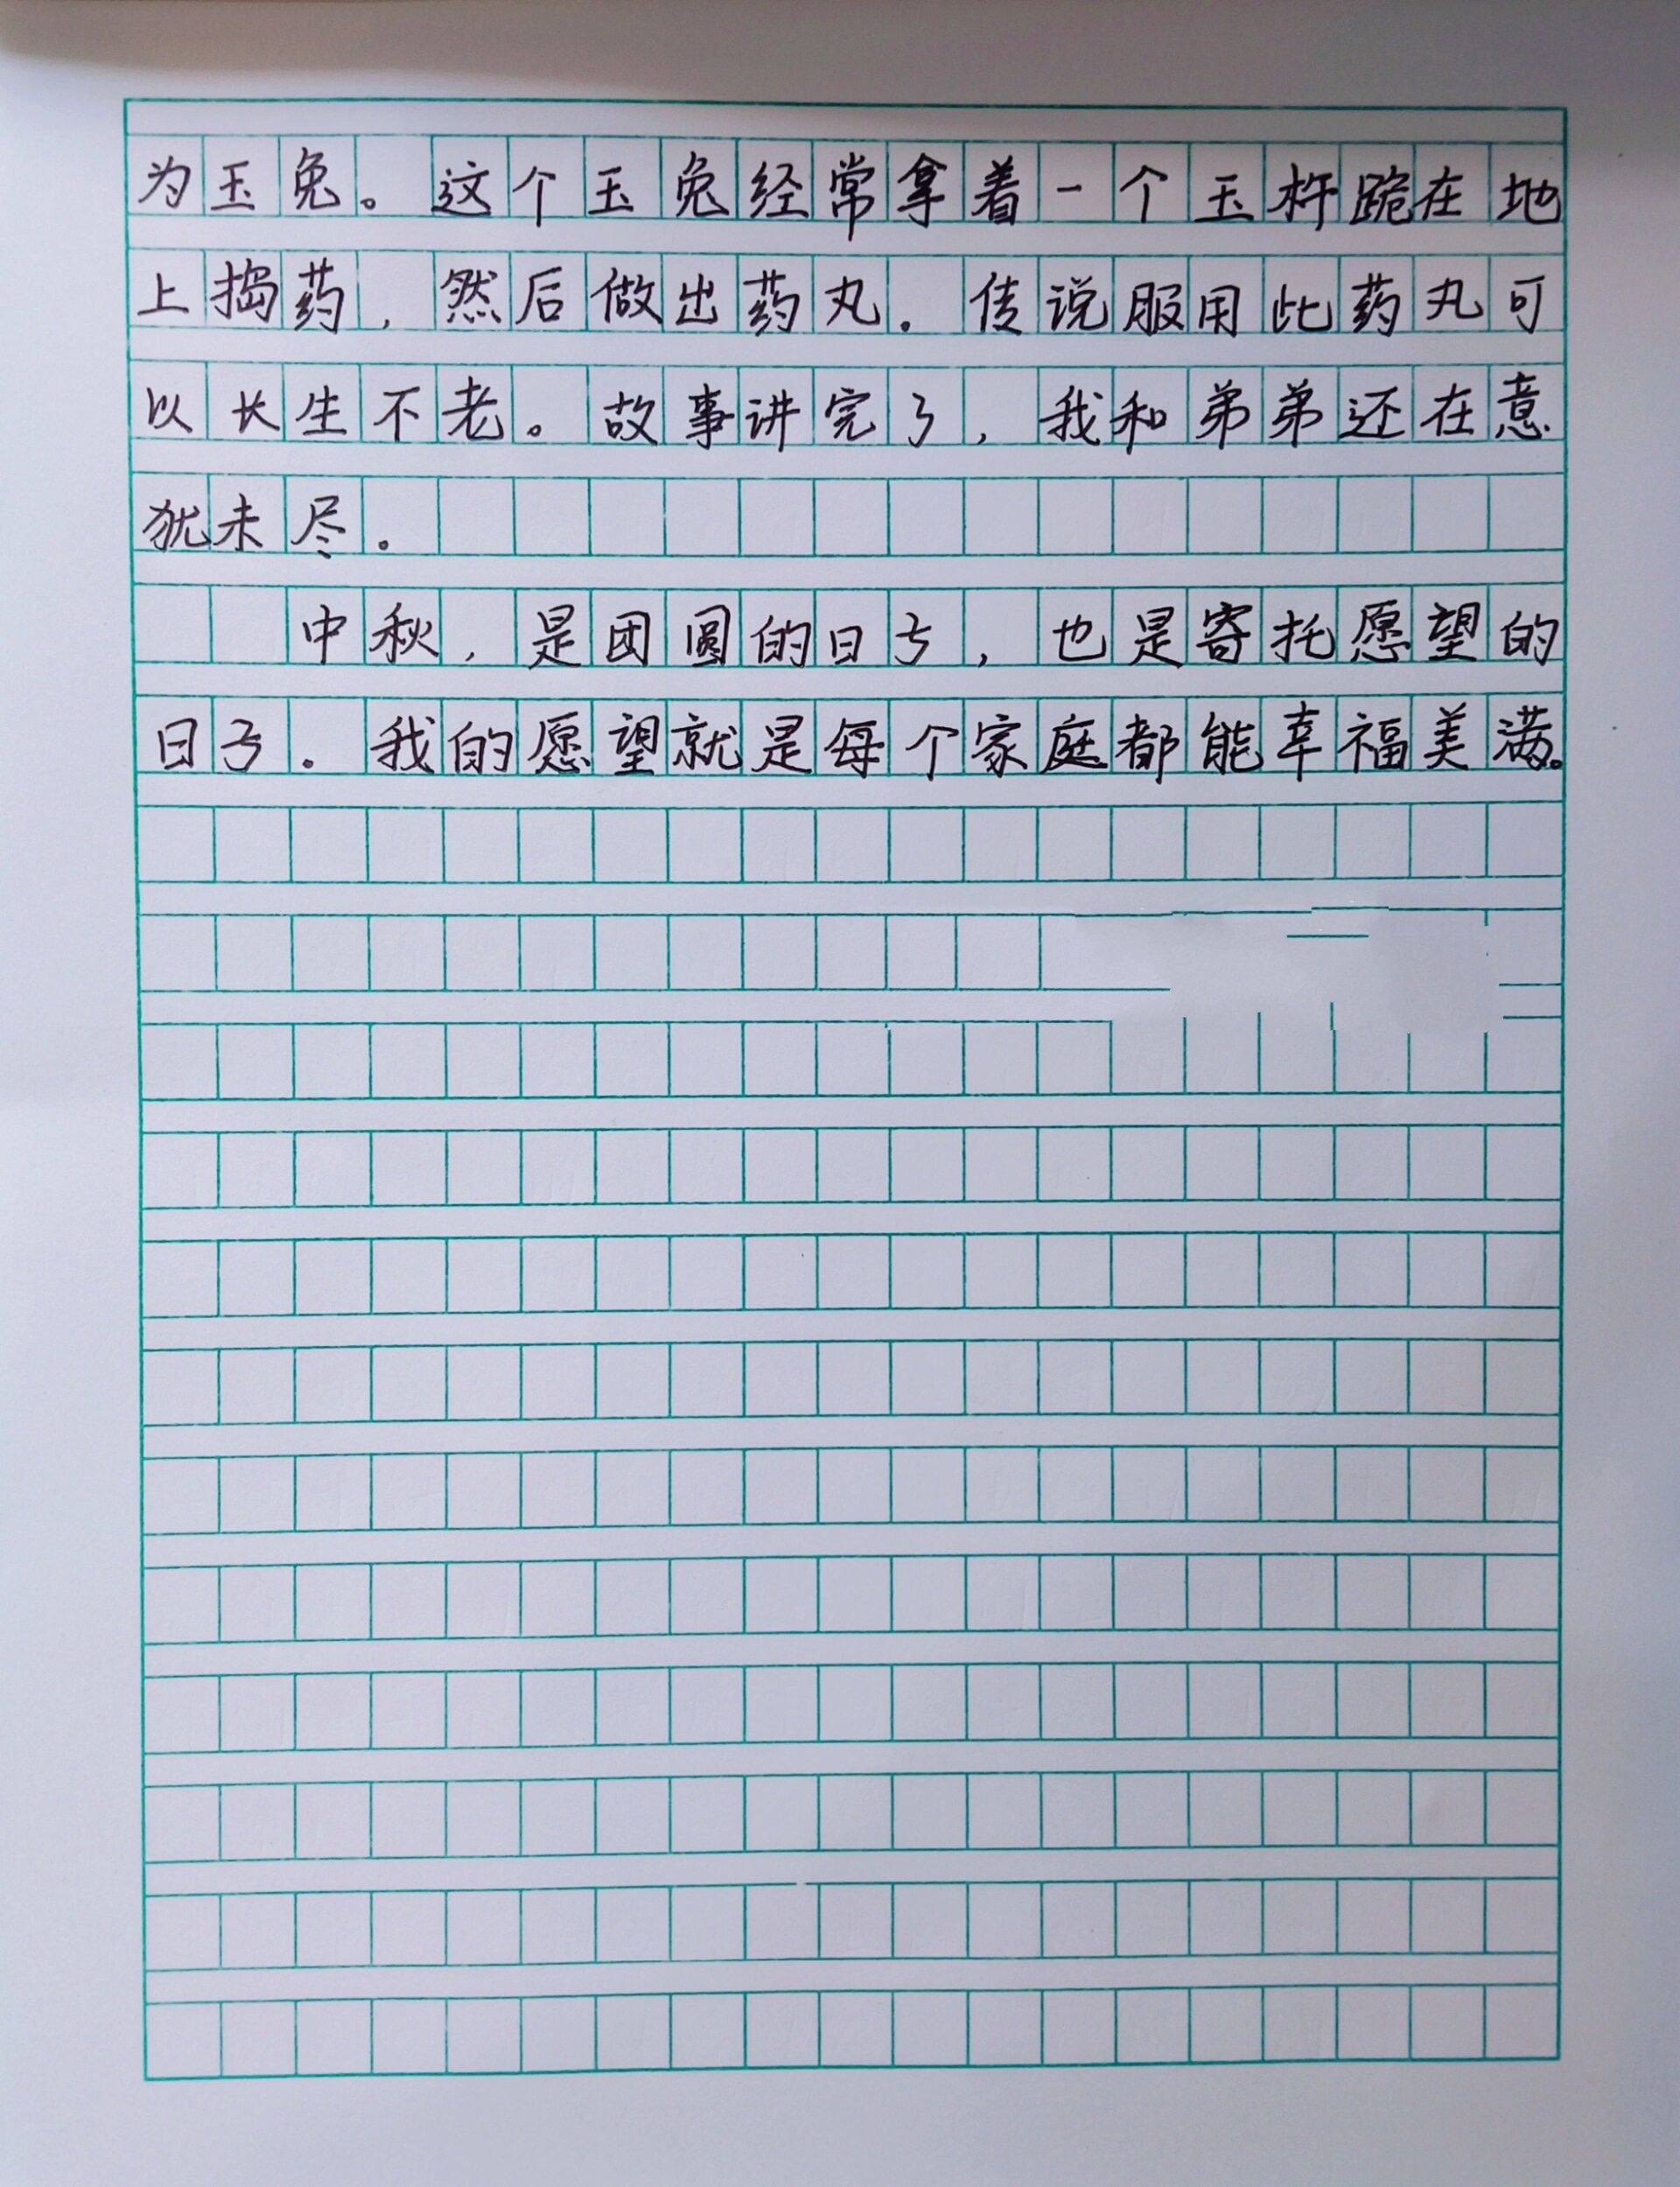 为玉兔。这个玉兔经常拿着一个玉杵跪在地
上捣药，然后做出药丸.传说服用此药丸可
以长生不老。故事讲完了，我和弟弟还在意
犹未尽。
中秋，是团圆的日子，也是寄托愿望的
日子.我的愿望就是每个家庭都能幸福美满。